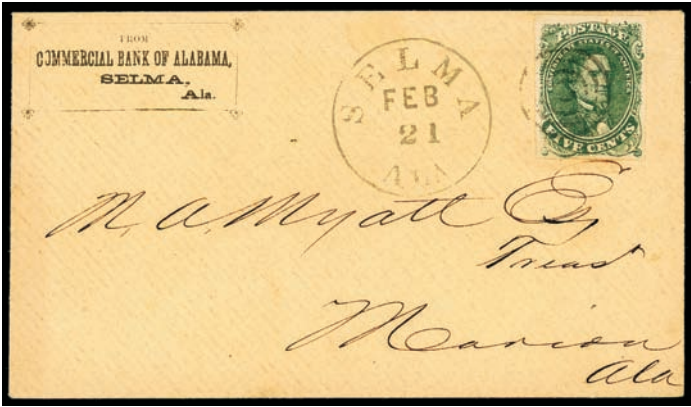 FROM
COMMERCIAL BANK OF ALABAMA,
SELMA,
Ala.
SELMA
FEB
21
ALA
POSTAGE
CONFEDERATE STATES OF AMERICA
FIVE CENTS
M. A. Myatt Esq
Treas
Marion
Ala